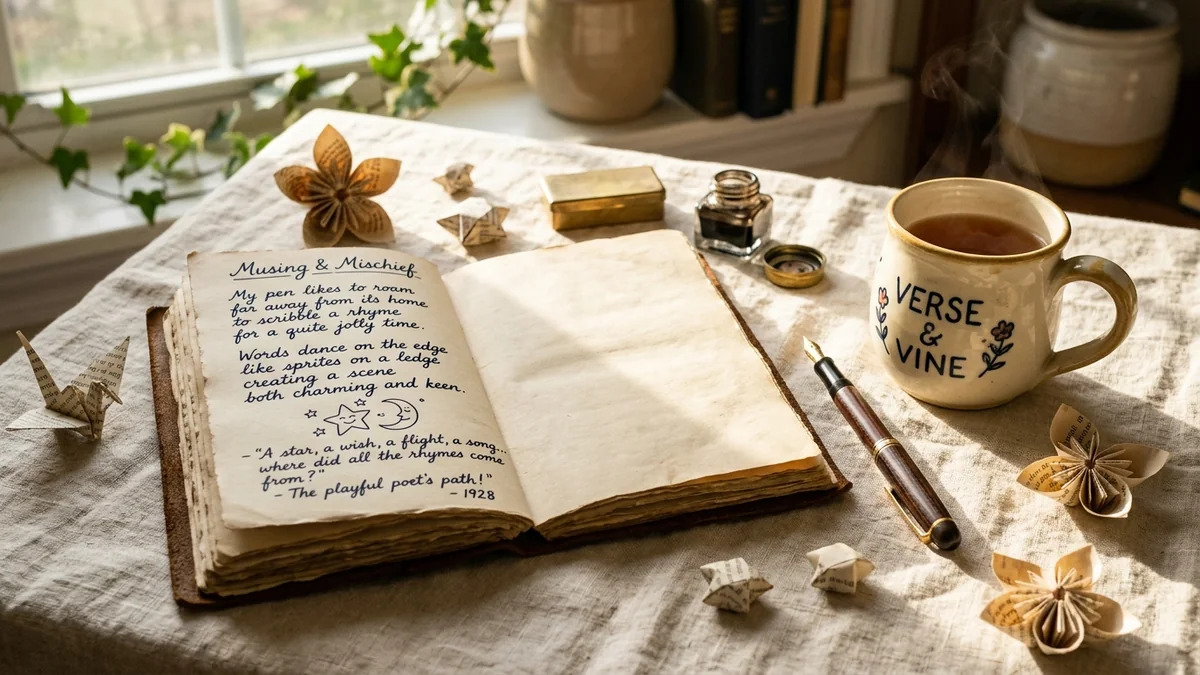 Musing & Mischief
My pen likes to roam
far away from its home
to scribble a rhyme
for a quite jolly time.
Words dance on the edge
like sprites on a ledge
creating a scene
both charming and keen.
– "A star, a wish, a flight, a song...
where did all the rhymes come
from?"
– The playful poet's path!"
– 1928
VERSE
&
VINE